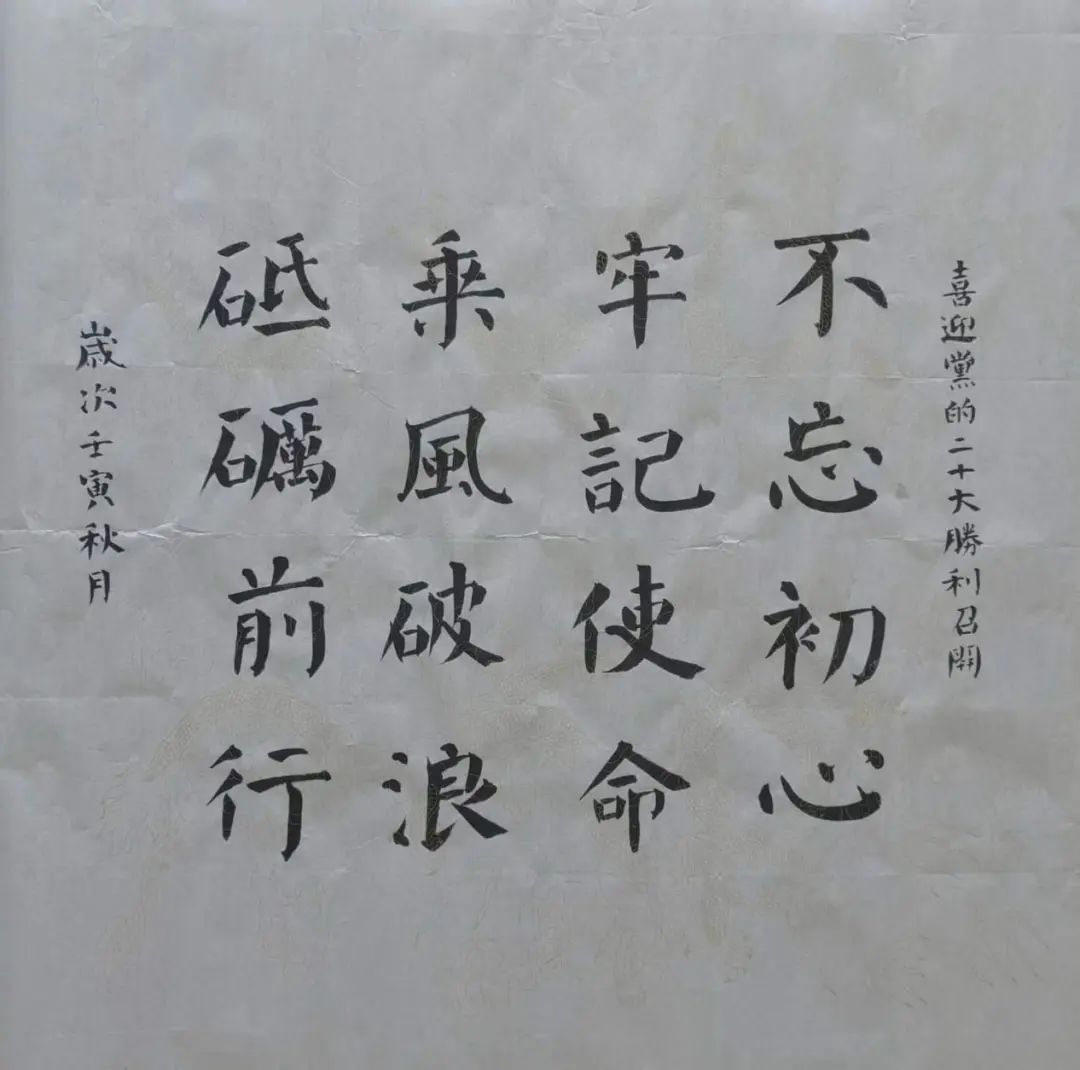 喜迎黨的二十大勝利召開
不忘初心
牢記使命
乘風破浪
砥礪前行
歲次壬寅秋月